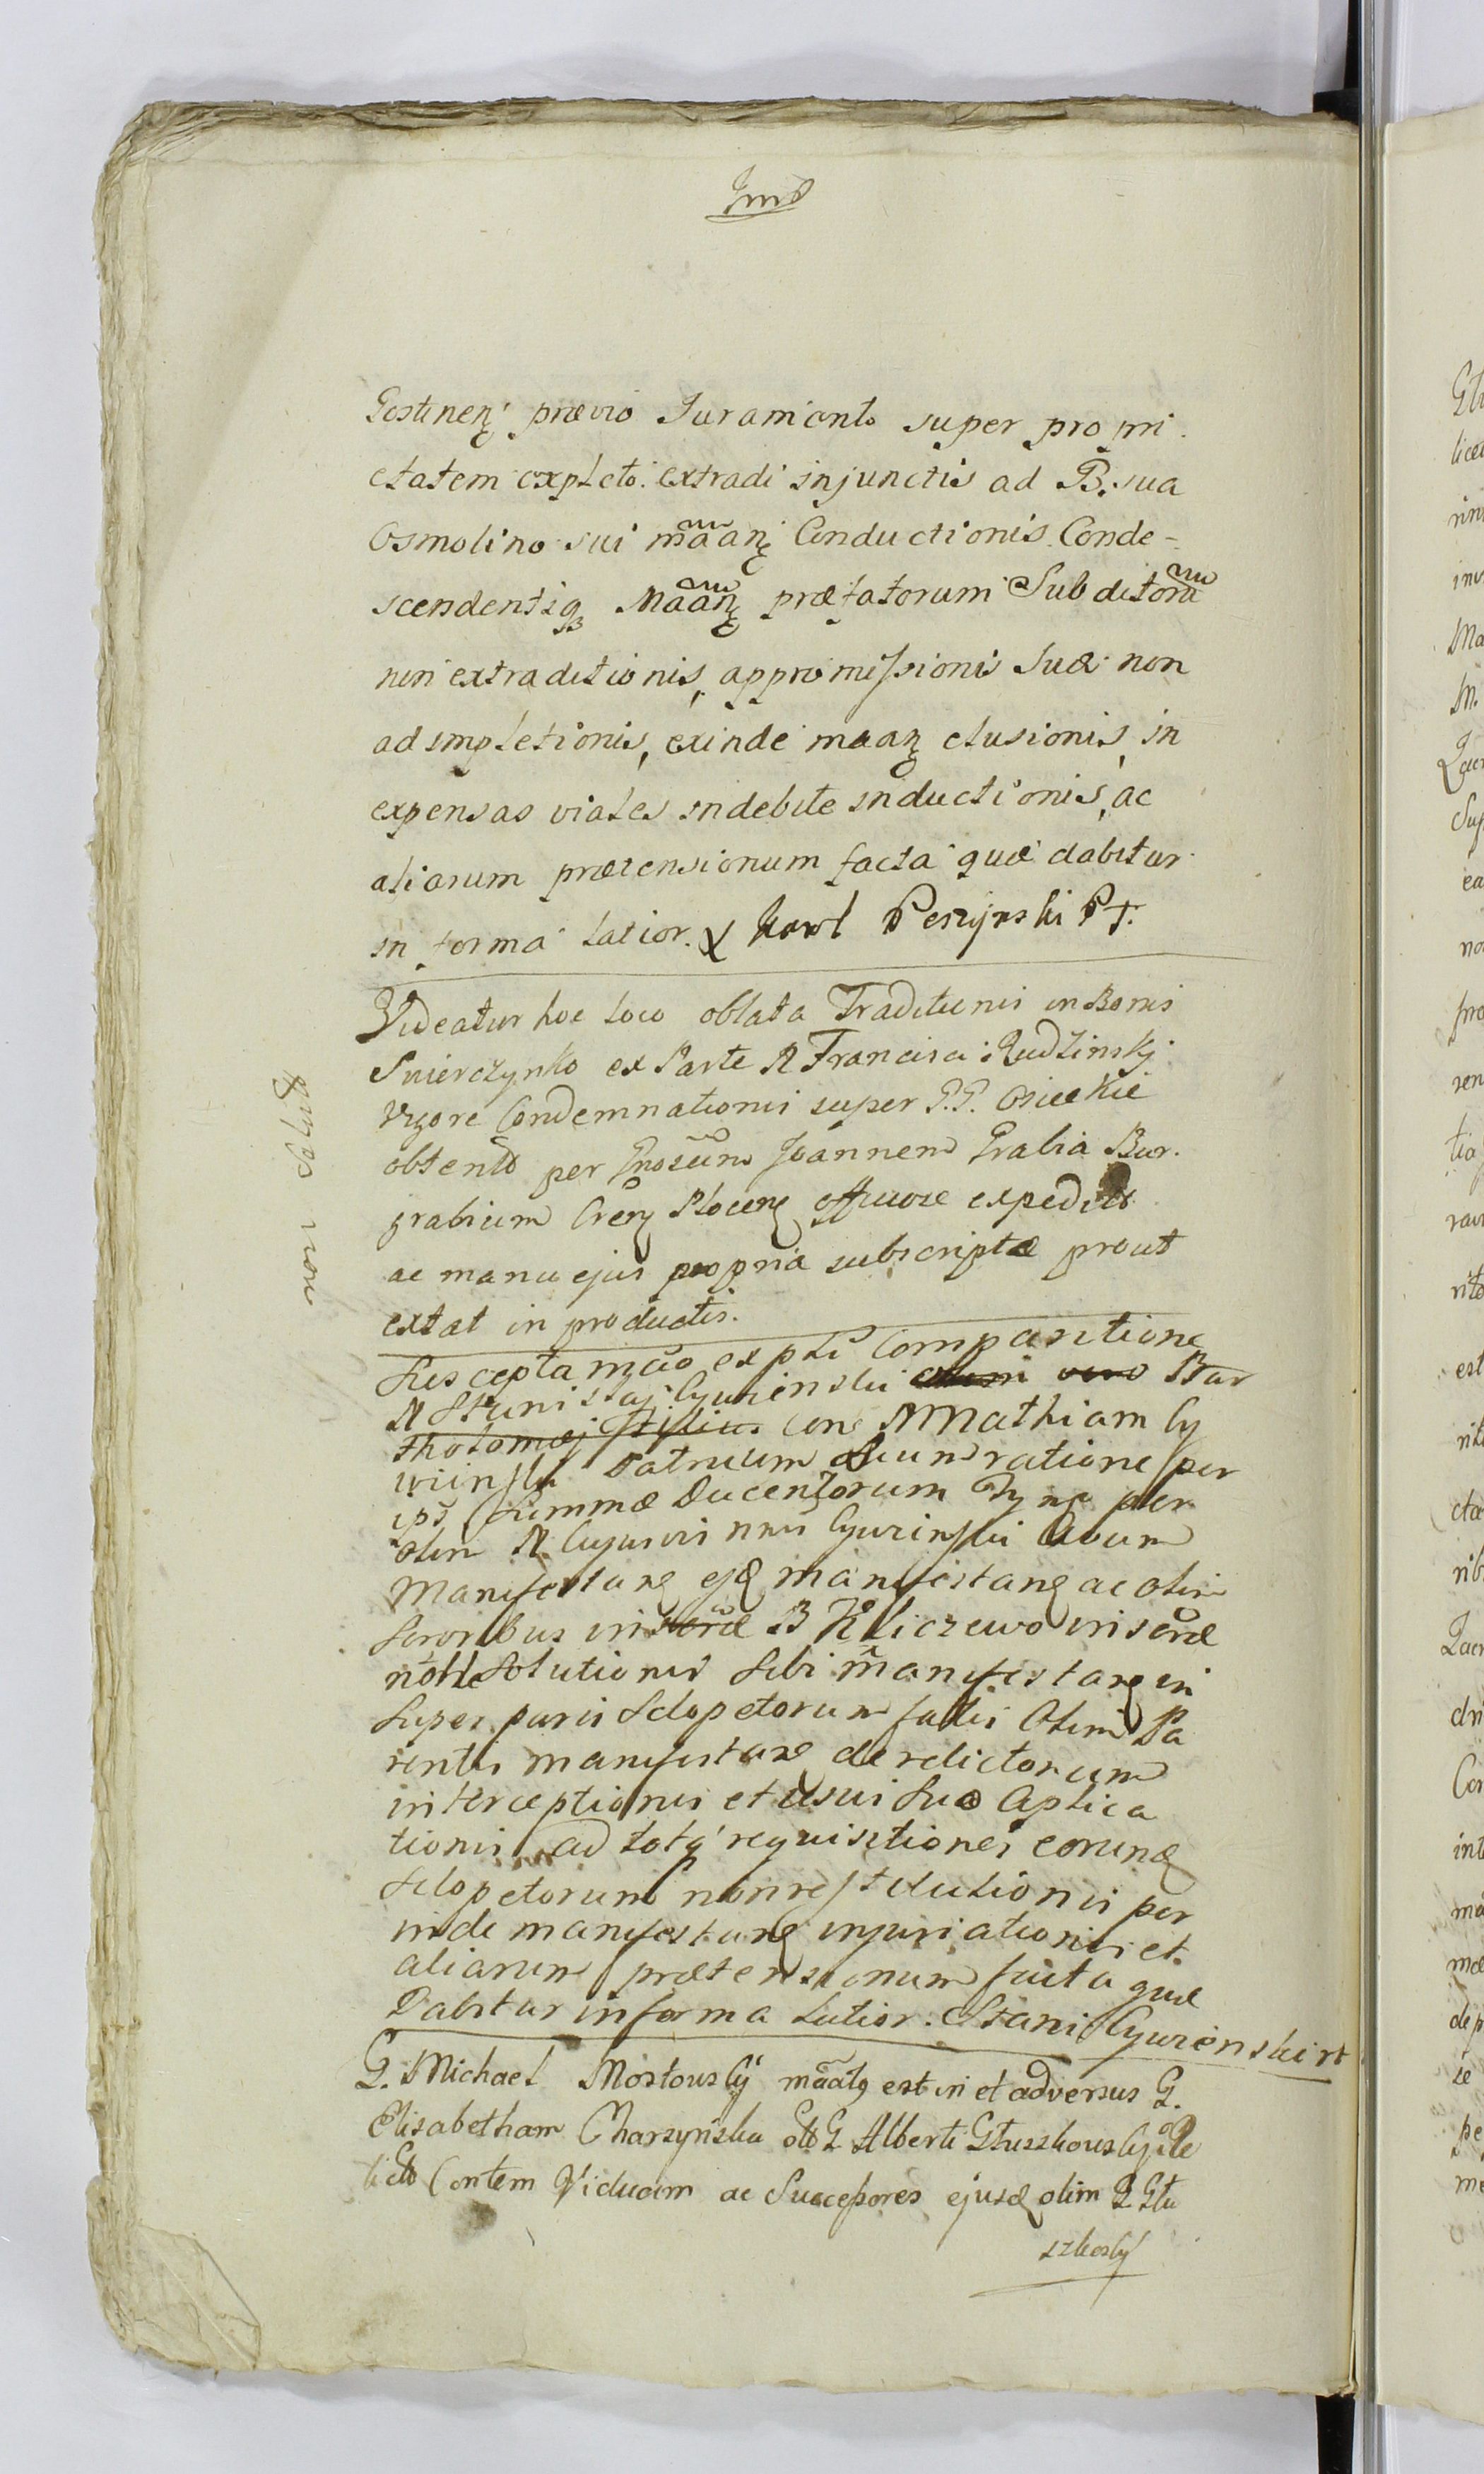 Gostinen prævio Juramento super propri
etatem expleto extradi injunctis ad B. sua
Osmolino sui mããn Conductionis Conde-
scendentiq Mããn præfatorum Subditorũ
non extraditionis, appromissionis suæ non
adimpletionis, exinde maan elusionis, in
expensas viales indebite inductionis, ac
aliarum prætensionum facta quæ dabitur
in forma latior. X Karol Peszynski PT.
Videatur hoc loco oblata Traditionis in Bonis
Swierczynko ex Parte N Francisci Rudzinskj
Vigore Condemnationis super P.P. Osieckie
obtento per Gnosum Joannem Grabia Bur.
grabium Cren Plocen officiose expedit
ac manu ejus propria subscriptæ prout
extat in productis.
Suscepta mão ex pti Comparitione
N Stanislaj Cywinski Bar
tholomæj filius con N Mathiam Cy
winski Patruum suum ratione per
ips Summæ Ducentorum Tynf per
olim N Cywinski Avum
Manifestan ejd manifestan ac olim
Sororibus inscræ B Kliczewo inscræ
Solutionis sibi manifestan in
super paris Sclopetorum olim Pa
rentis manifestan derelictorum
interceptionis et usui suo Aplica
tionis ad totq requisitiones eorund
Sclopetorum non restitutionis per
inde manifestan injuriationis et
aliarum prætensionum facta quæ
Dabitur in forma Latior. Stani Cywienski
G. Michael Mostowsky mããtq est in et adversus G.
Elisabetham Charzynska G Alberti Gluszkowsky Re
lictã Contem Viduam ac Successores ejusd olim G Glu
szkosky
non solvit